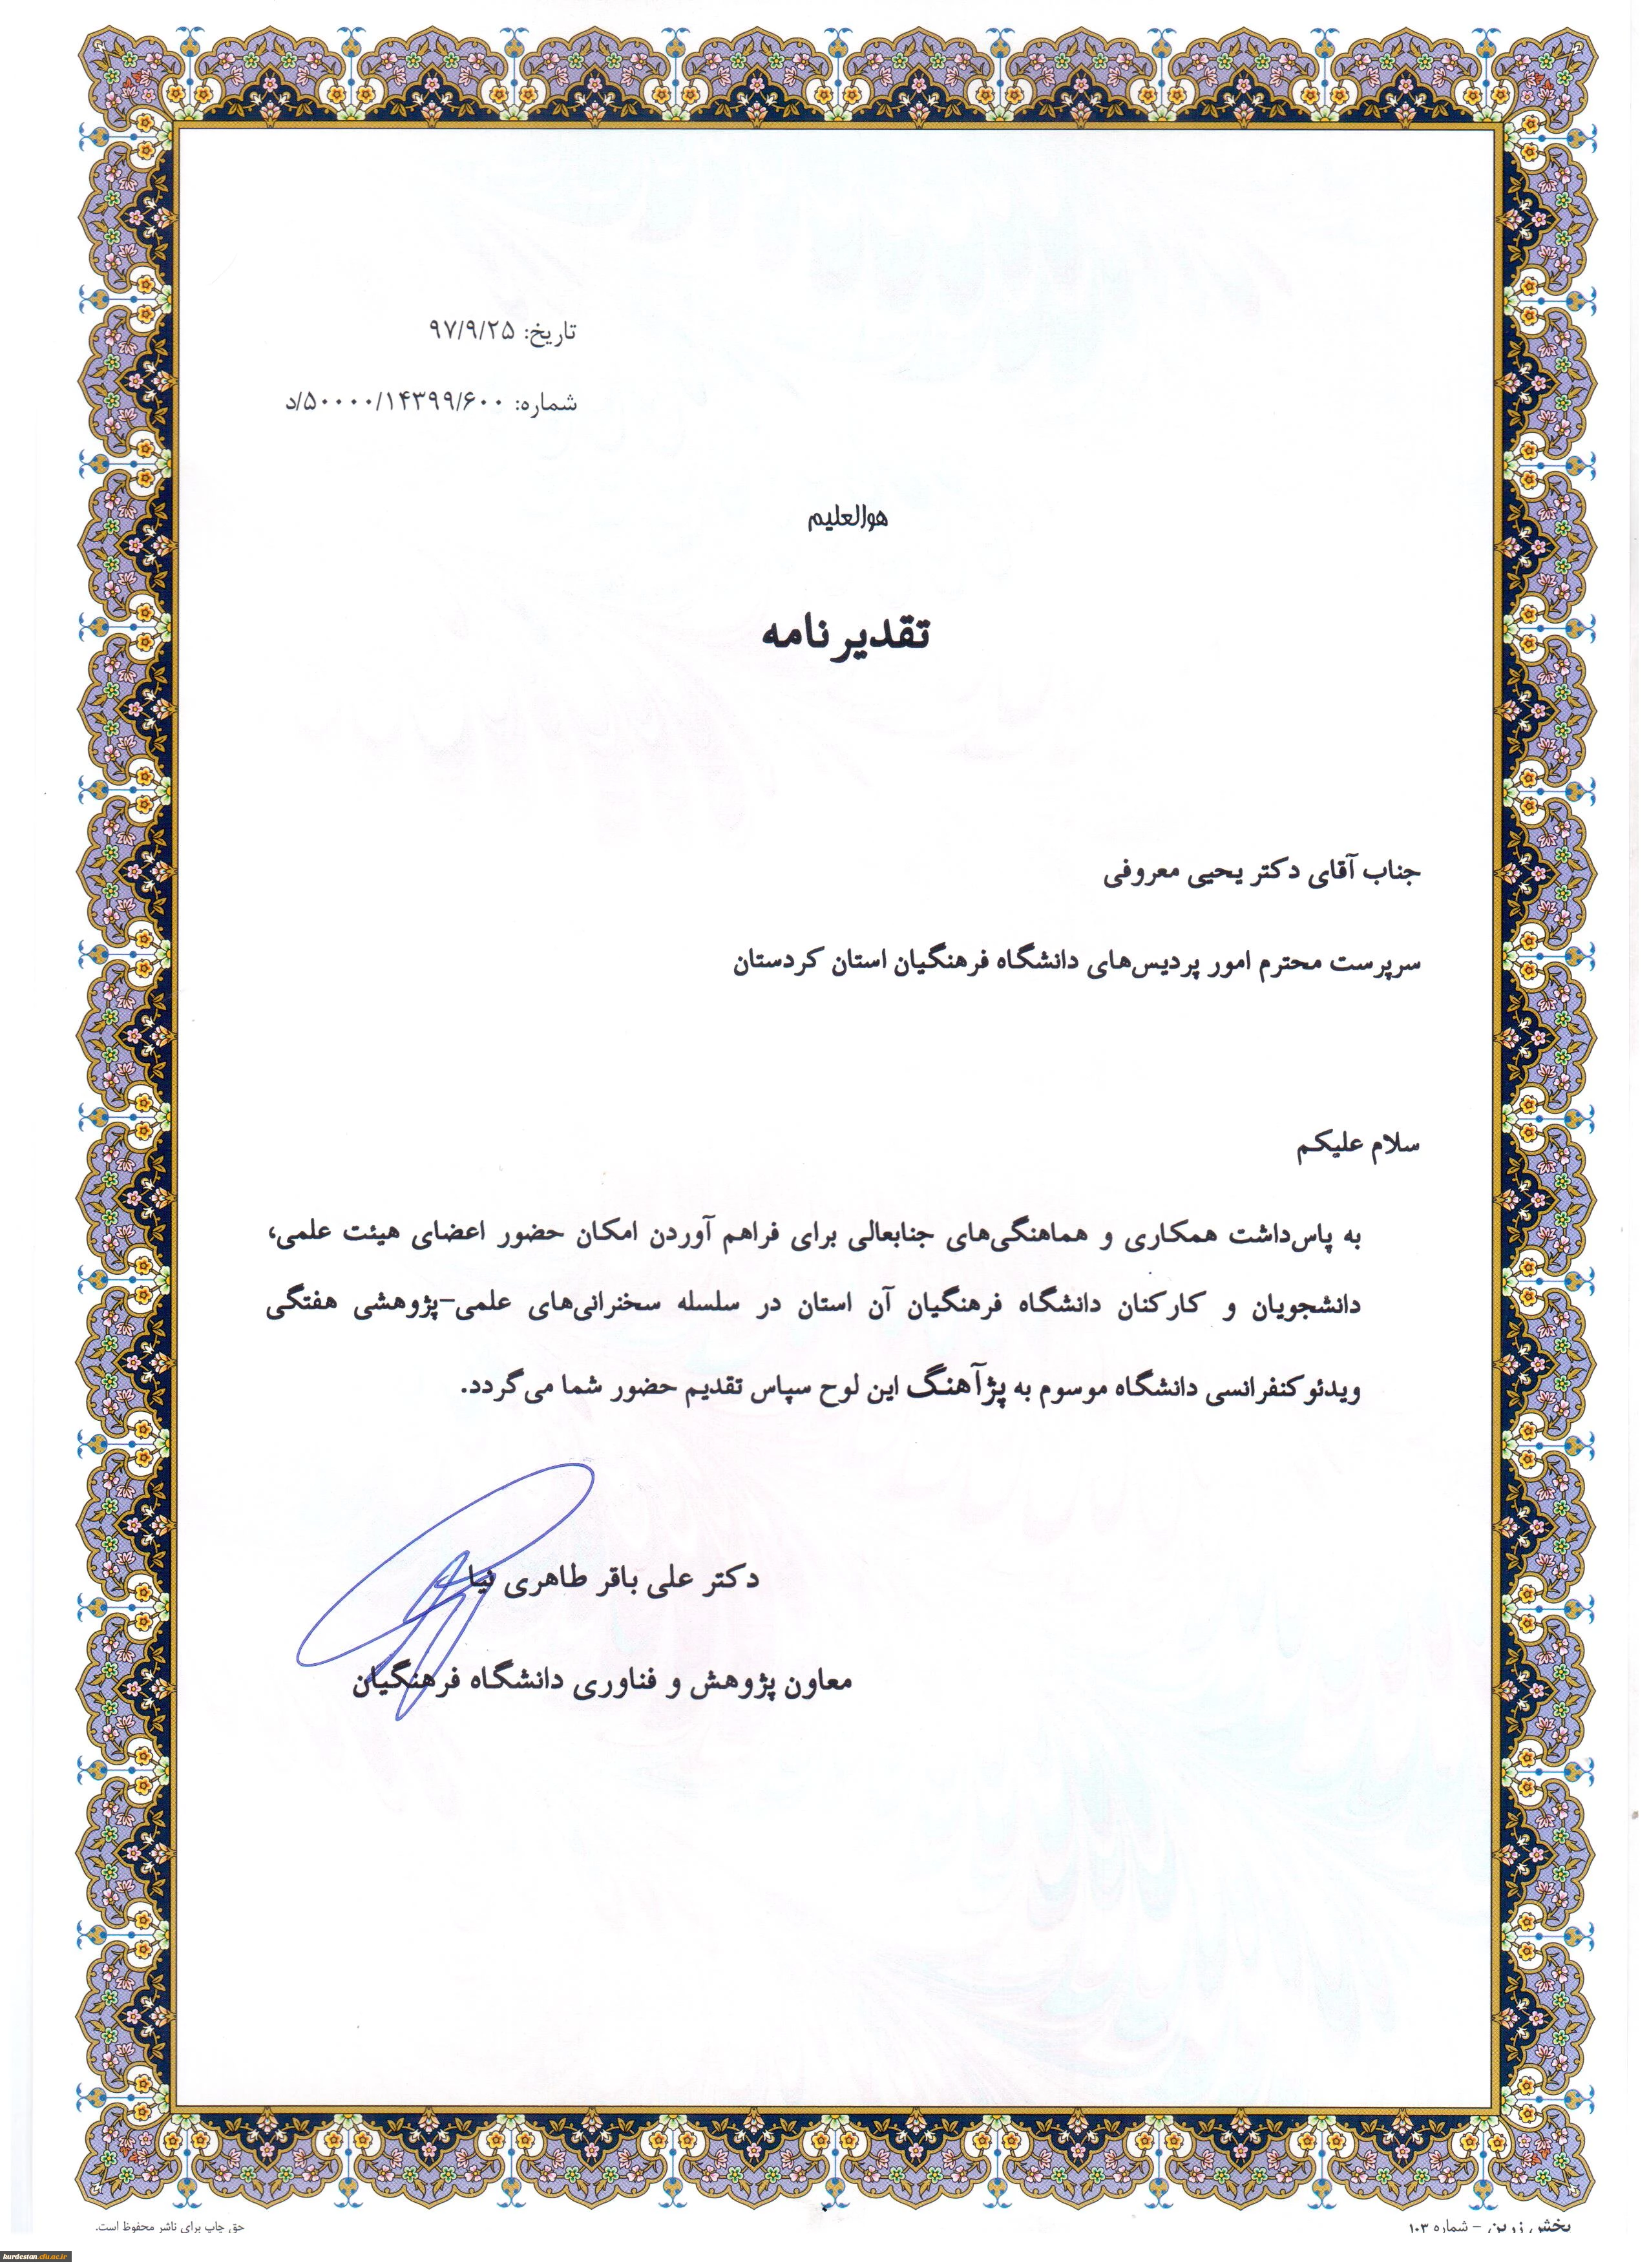 تاریخ: ۹۷/۹/۲۵
شماره: ۵۰۰۰۰/۱۴۳۹۹/۶۰۰/د
هوالعلیم
تقدیرنامه
جناب آقای دکتر یحیی معروفی
سرپرست محترم امور پردیس‌های دانشگاه فرهنگیان استان کردستان
سلام علیکم
به پاس‌داشت همکاری و هماهنگی‌های جنابعالی برای فراهم آوردن امکان حضور اعضای هیئت علمی،
دانشجویان و کارکنان دانشگاه فرهنگیان آن استان در سلسله سخنرانی‌های علمی-پژوهشی هفتگی
ویدئوکنفرانسی دانشگاه موسوم به پژآهنگ این لوح سپاس تقدیم حضور شما می‌گردد.
دکتر علی باقر طاهری نیا
معاون پژوهش و فناوری دانشگاه فرهنگیان
پخش زرین - شماره ۱۰۳
حق چاپ برای ناشر محفوظ است.
kurdestan.cfu.ac.ir